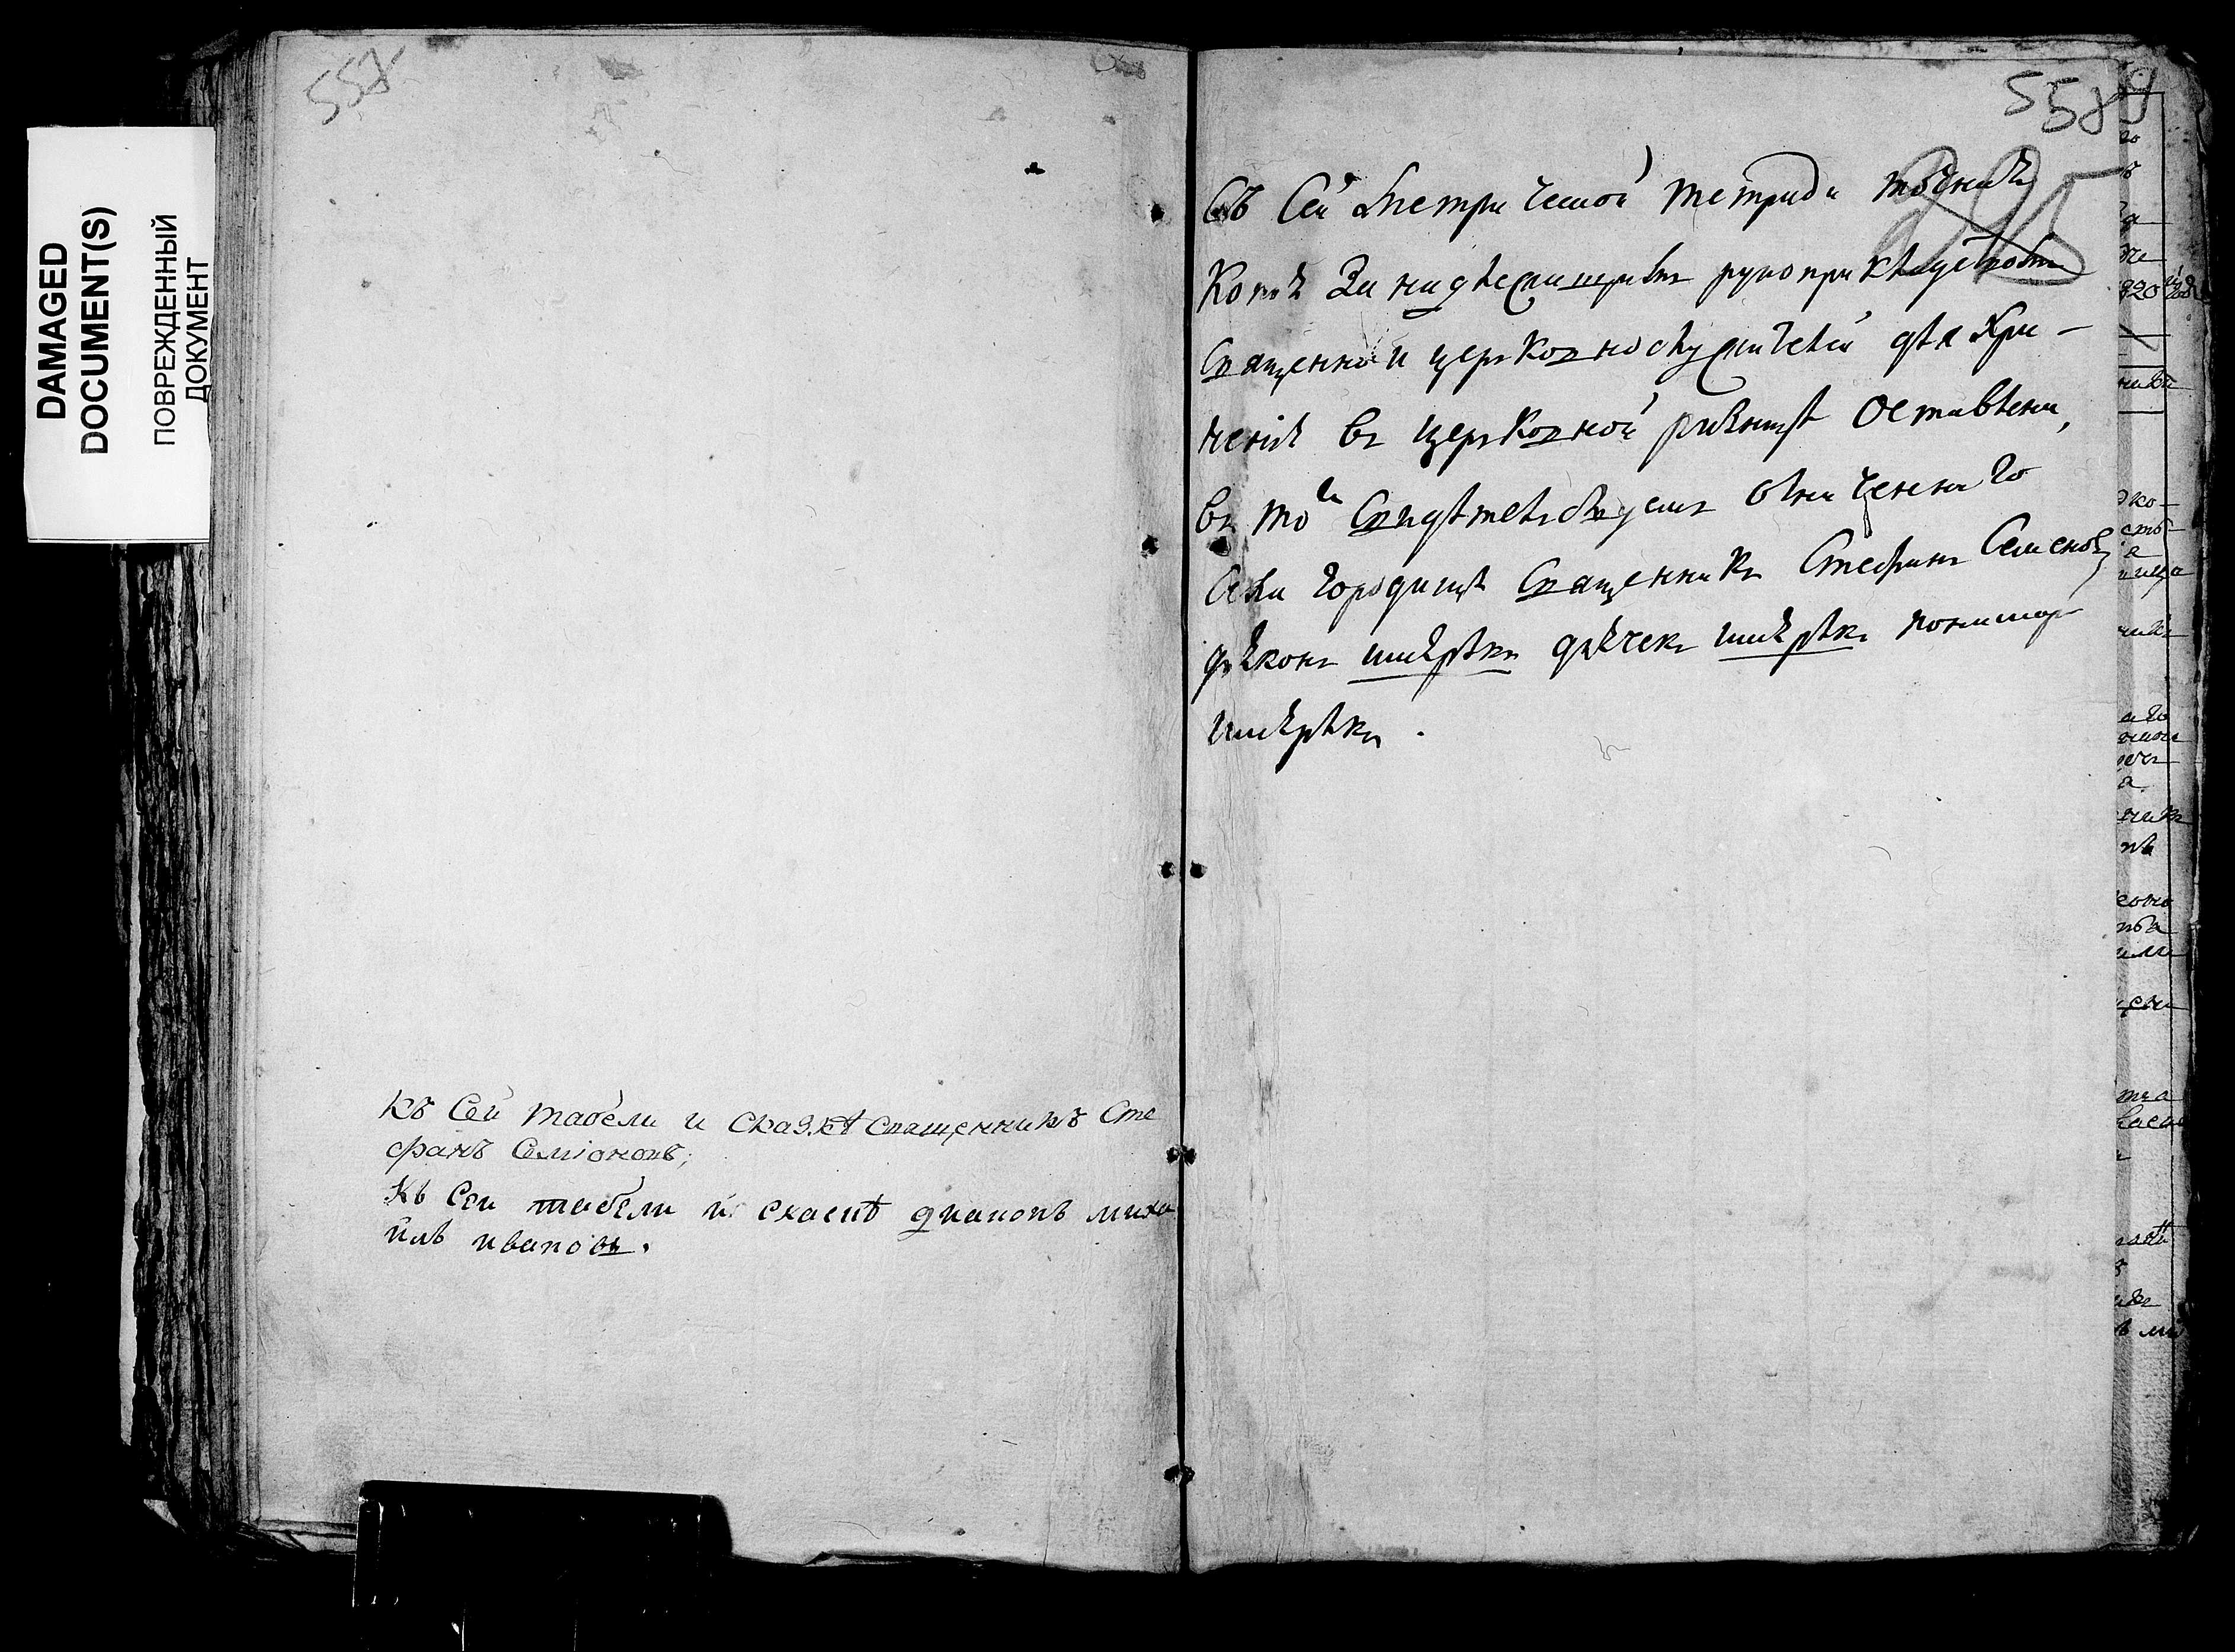 DAMAGED
DOCUMENT(S)
ПОВРЕЖДЕННЫЙ
ДОКУМЕНТ
558
Къ Сей табели и сказкѣ священникъ Сте
фанъ Семіоновъ;
Къ Сеи табели и скаскѣ диаконъ миха
илъ ивановъ.
558
Съ Сей Метрической тетради точная
Копія За надлежащимъ рукоприкладствомъ
Священно и церковнослужителей для Хра-
ненія въ церковной ризницѣ Оставлена,
въ той Свидѣтельствуемъ означеннаго
Села городища Священникъ Стефанъ Семеновъ
діяконъ дьячекъ пономарь